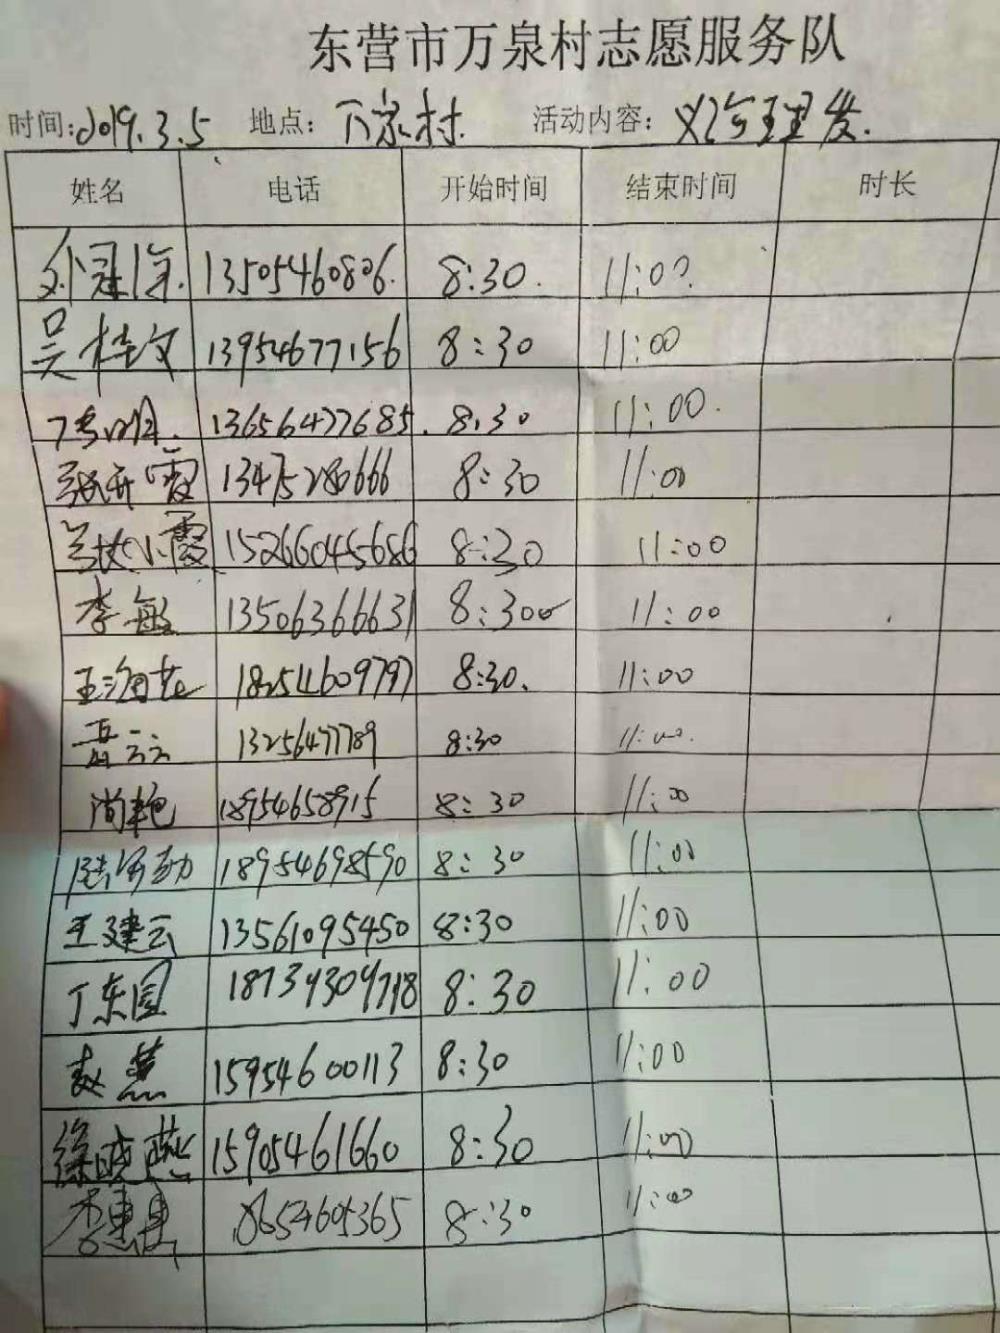 东营市万泉村志愿服务队
时间:2019.3.5 地点: 万泉村. 活动内容: 义诊理发.
姓名 电话 开始时间 结束时间 时长
13505460806. 8:30. 11:00.
吴桂文 13954677156 8:30 11:00
13656477685. 8:30 11:00.
13475280666 8:30 11:00
小霞 15266045686 8:30 11:00
李敏 13506366631 8:300 11:00
王海花 18254609797 8:30. 11:00
13256477789 8:30 11:00.
尚艳 18954658915 8:30 11:00
18954698590 8:30 11:00
王建云 13561095450 8:30 11:00
丁东国 8:30 11:00
赵慧 15954600113 8:30 11:00
徐晓燕 15905461660 8:30 11:00
李惠 8:30 11:00